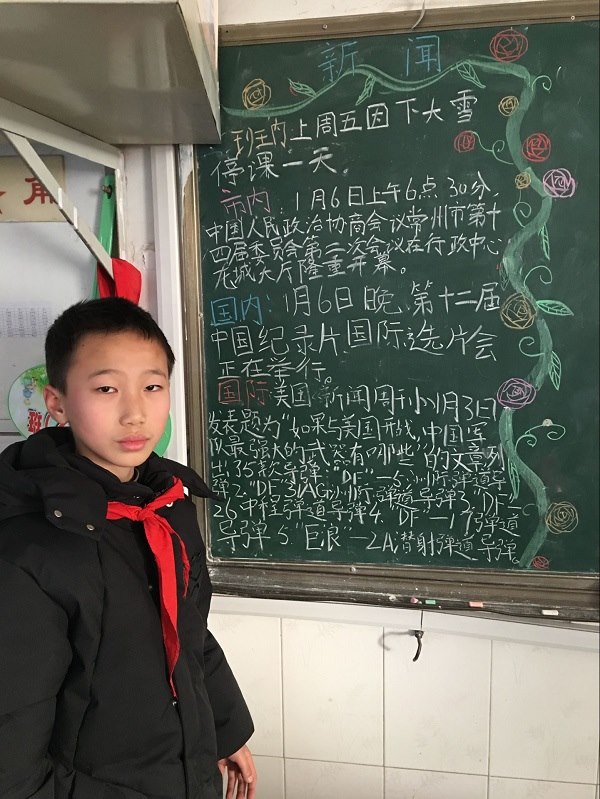 新闻
班内:上周五因下大雪
停课一天。
市内:1月6日上午6点30分,
中国人民政治协商会议常州市第十
四届委员会第二次会议在行政中心
龙城大厅隆重开幕。
国内:1月6日晚,第十二届
中国纪录片国际选片会
正在举行。
国际:美国《新闻周刊》1月3日
发表题为“如果与美国开战,中国军
队最强大的武器有哪些”的文章列
出5款导弹1.“DF”—5
弹2.“DF”—31AG
26中程弹道导弹4.“DF”—17弹道
导弹5.“巨浪”—2A潜射弹道导弹
角